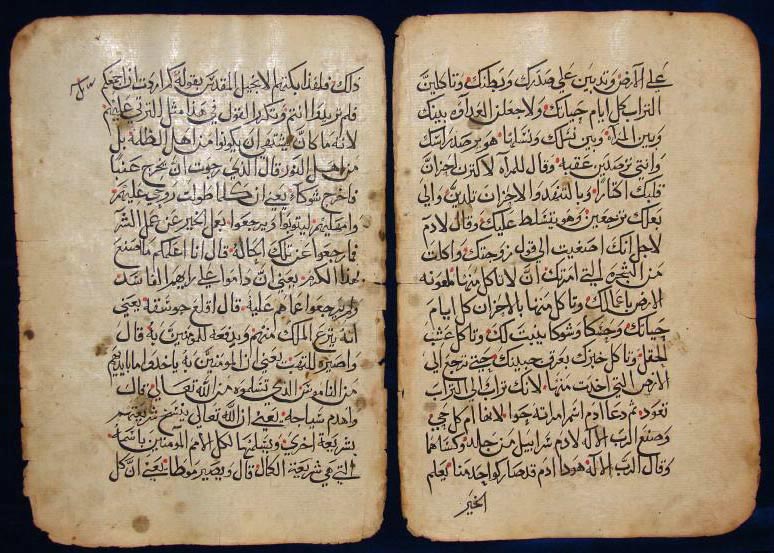 على الارض وتدبين على صدرك وبطنك وتاكلين
التراب كل ايام حياتك ولاجعلن العداوه بينك
وبين المراة وبين نسلك ونسلها هو يرصد راسك
وانتي ترصدين عقبه وقال للمراه لاكثرن احزان
قلبك اكثارا وبالتنهد والاحزان تلدين والى
بعلك ترجعين وهو يتسلط عليك وقال لادم
لاجل انك اصغيت الى قول زوجتك واكلت
من الشجره التي امرتك ان لا تاكل منها ملعونه
الارض باعمالك وتاكل منها بالاحزان كل ايام
حياتك وحسكا وشوكا ينبت لك وتاكل عشب
الحقل وتاكل خبزك بعرق جبينك حتى ترجع الى
الارض التي اخذت منها لانك تراب الى التراب
تعود ثم دعا ادم اسم امراته حوا لانها ام كل حي
وصنع الرب الاله لادم سرابيل من جلد وكساهما
وقال الرب الاله هوذا ادم قد صار كواحد منا يعلم
الخير
ذلك فلهذا الانجيل المقدس بقوله كم اردت ان اجمعكم
فلم تريدوا انتم ويكرر القول في هذا مثل للترثي عليهم
لانه ما كان يشتهي ان يكونوا من اهل الظلمة بل
من اهل النور قال الذي رجوت ان يخرج عنبا
فاخرج شوكا يعني ان كلما طولت روحي عليهم
وامهلهم ليتوبوا ويرجعوا بعمل الخير عن عمل الشر
فارجعوا عن تلك الحاله قال انا اعلمكم ما اصنع
بهذا الكرم يعني ان داموا على رايهم الفاسد
ولم يرجعوا عما هم عليه قال اقلع حوشته يعني
انه ينزع الملك منهم ويدفعه للمومنين به قال
واصيره للنهب يعني ان المومنين به ياخذوا ما بايديهم
من الناموس الذي تسلموه من الله تعالى قال
واهدم سياجه يعني ان الله تعالى ينسخ شريعتهم
بشريعة اخرى ويسلمها لكل الامم المومنين باسمه
التي هي شريعة الكمال قال ويصير موطا يعني ان كل